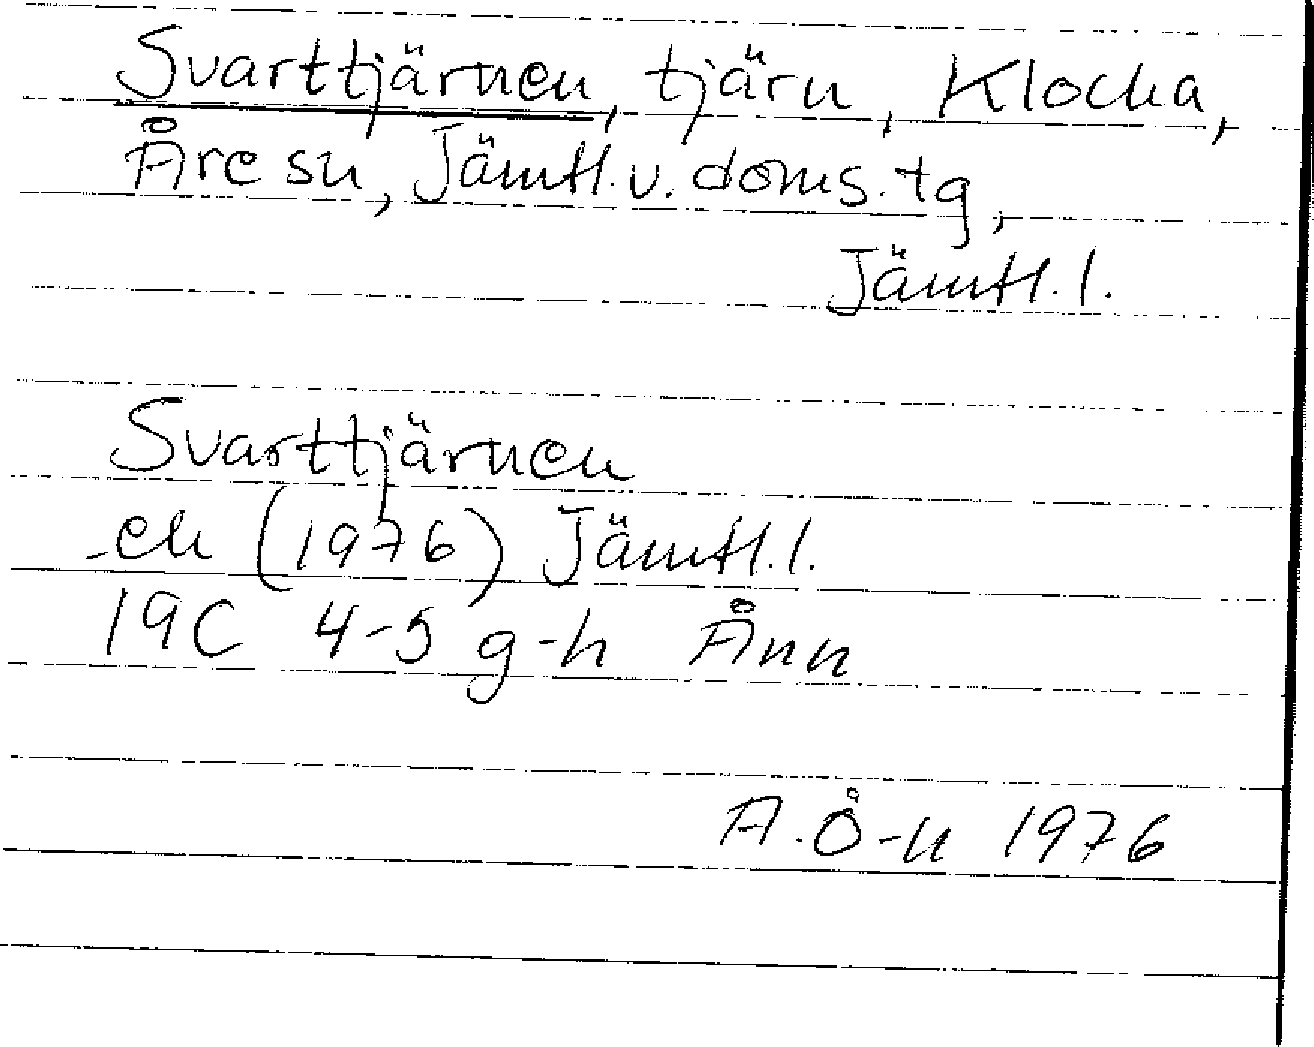 Svarttjärnen, tjärn, Klocka,
Åre sn, Jämtl. v. doms. tg,
Jämtl. l.
Svarttjärnen
ek (1976) Jämtl. l.
19C 4-5 g-h Ånn
A. Ö-n 1976